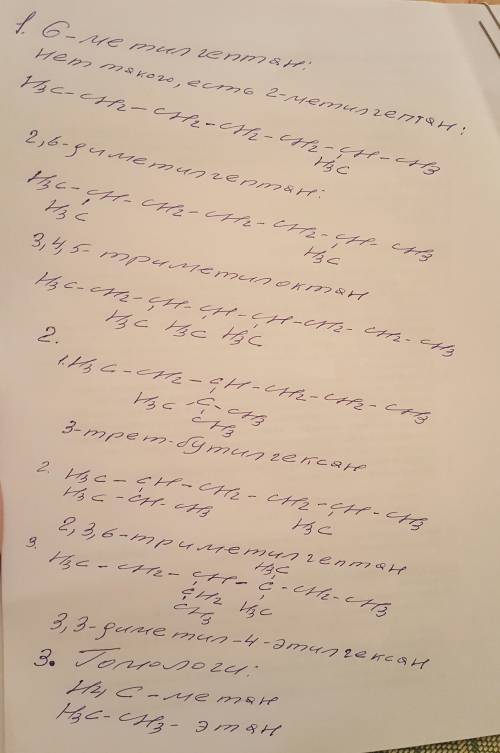 1. 6-метилгептан:
нет такого, есть 2-метилгептан:
H3C-CH2-CH2-CH2-CH2-CH-CH3
H3C
2,6-диметилгептан:
H3C-CH-CH2-CH2-CH2-CH-CH3
H3C H3C
3,4,5-триметилоктан
H3C-CH2-CH-CH-CH-CH2-CH2-CH3
H3C H3C H3C
2.
1. H3C-CH2-CH-CH2-CH2-CH3
H3C-C-CH3
CH3
3-трет-бутилгексан
2. H3C-CH-CH2-CH2-CH-CH3
H3C-CH-CH3 H3C
2,3,6-триметилгептан
H3C
3. H3C-CH2-CH-C-CH2-CH3
CH2 H3C
CH3
3,3-диметил-4-этилгексан
3. Гомологи:
H4C-метан
H3C-CH3-этан